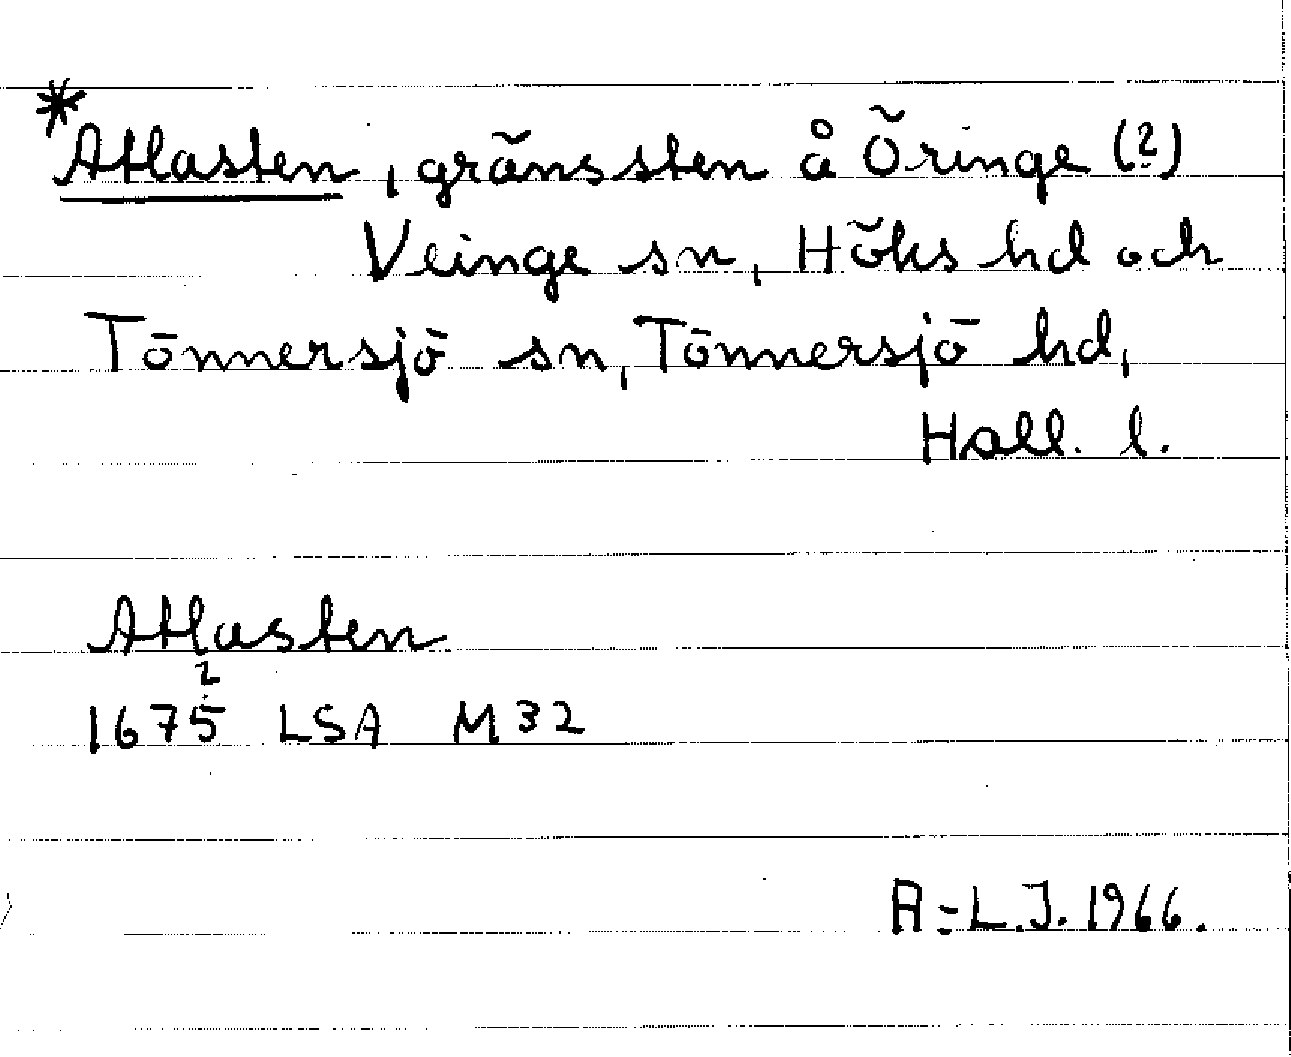 *Atlasten, gränssten å Öringe (?)
Veinge sn, Höks hd och
Tönnersjö sn, Tönnersjö hd,
Hall. l.
Atlasten
2
1675 LSA M32
A-L.J. 1966.